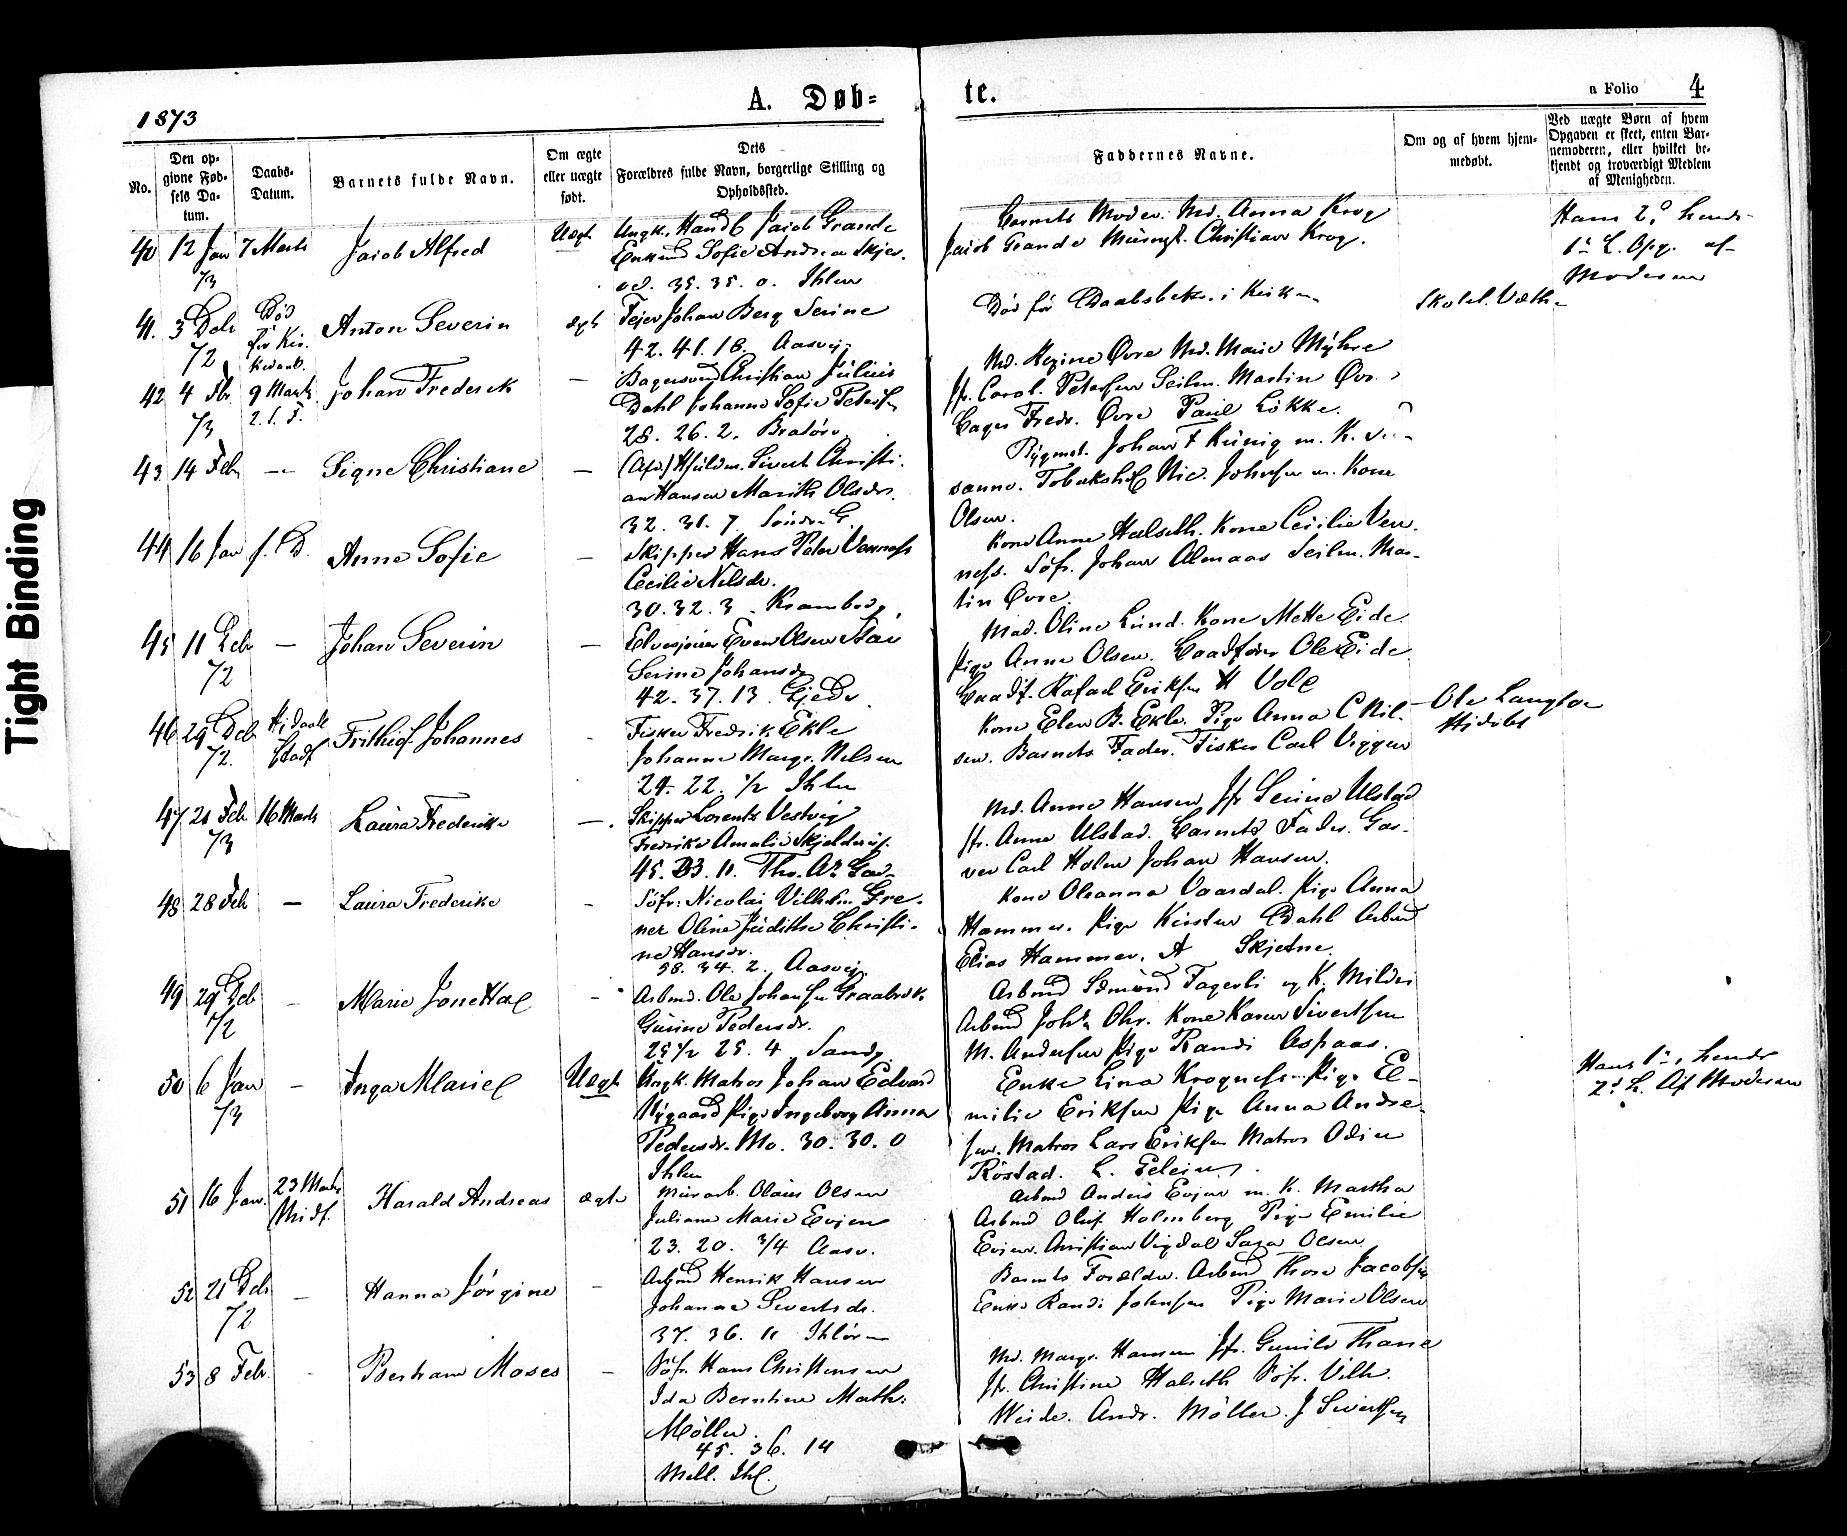 Tight Binding
1873
A. Døb=
te.
a Folio 4
No.
Den op-
givne Fød-
sels Da-
tum.
Daabs-
Datum.
Barnets fulde Navn.
Om ægte
eller uægte
født.
Dets
Forældres fulde Navn, borgerlige Stilling og
Opholdssted.
Faddernes Navne.
Om og af hvem hjem-
medøbt.
Ved uægte Børn af hvem
Opgaven er skeet, enten Bar-
nemoderen, eller hvilket be-
kjendt og troværdigt Medlem
af Menigheden.
40 12 Jan 73 7 Marts Jacob Alfred Uægt
Ungk. Handl Jacob Grande
Sofie
35. 35. 0. Ihlen
Barnets Moder. Md. Anna Krog
Jacob Grande Christian Krog.
Hans 2d
Opg. af
Moderen
41. 3 Deb 72 Død før Anton Severin ægt
Feier Johan Berg Serine
42. 41. 18. Aasvei
Død før
42 4 Fbr. 73 9 Marts Johan Frederik —
Christian Julius
Dahl Johanne Sofie Petersen
28. 26. 2. Bratøre
Md. Regine Øvre Md. Marie Myhre
Jfr. Carol. Petersen Seilm. Martin Øvre
Bager Fredr. Øvre Paul Løkke.
43 14 Feb — Signe Christiane —
Sivert Christi-
an Hansen Marith Olsdr.
32. 31. 7
Johan
Nic. Johnsen m. Kone
Olsen.
44 16 Jan f. D. Anne Sofie —
Skipper Hans Peter Venness
Cecilie Nilsdr.
30. 32. 3
Kone Anne Halseth. Kone Cecilie Ven-
ness. Søfr. Johan Almaas Seilm. Mar-
tin Øvre.
45 11 Deb 72 — Johan Severin —
Even Olsen
Serine Johansdr
42. 37. 13.
Mad. Oline Lund. Kone Mette Eide.
Pige Anne Olsen. Baadfører Ole Eide
Baadf. Rafael Eriksen
46 29 Deb 72. Hjdaab Stadf Frithiof Johannes -
Fisker Fredrik Ekle
Johanne Margr. Nilsen
24. 22. ½ Ihlen
Kone Elen B. Ekle. Pige Anna C Nil-
sen. Barnets Fader. Fisker Carl Viggen
Ole
Hjdøbt
47 21 Feb 73 16 Marts Laura Frederikke —
Skipper Lorents Vestvig
Fredrikke Amalie Skjelderup.
45. 33. 11.
Md. Anne Hansen Jfr Serine Ulstad
Jfr. Anne Ulstad. Barnets Fader. Gar-
ver Carl Holm Johan Hansen.
48 28 Feb — Laura Frederikke -
Søfr. Nicolai Vilhelm Gre-
ner Oline Judithe Christi-
ne Hansdr.
58. 34. 2. Aasvei
Kone Oleanna Vaardal. Pige Anna
Hammer. Pige Kirsten Dahl Arbmd
Elias Hammer. A Skjetne
49 29 Deb 72 - Marie Jonetta -
Arbmd. Ole Johansen Graabrek
Gurine Pedersdr.
25½ 25. 4
Arbmd Edmund Fagerli og K. Mildri
Arbmd Kone Karen Sivertsen
M. Andersen Pige Randi Aspaas.
50 6 Jan 73 - Inga Marie Uægt
Ungk. Matros Johan Edvard
Nygaard Pige Ingeborg Anna
Pedersdr. Mo. 30. 30. 0
Ihlen
Enke Lina Krognes Pige E-
milie Eriksen Pige Anna Andre-
sen. Matros Lars Eriksen Matros Odin
Røstad.
Hans 1ste
Af Moderen
51 16 Jan. 23 Marts Harald Andreas ægte
Murarb. Olaus Olsen
Juliane Marie Evjen
23. 20. ¾ Aasv.
Arbmd Anders Evjen m. K. Martha
Arbmd Oluf Holmberg Pige Emilie
Evjen. Christian Vigdal Olsen
52 21 Deb 72 - Hanna Jørgine -
Arbmd Henrik Hansen
Johanne Sivertsdr.
37. 36. 11
Barnets Forældre. Arbmd Thore Jacobsen
Enke Randi Johnsen Pige Marie Olsen
53 8 Febr. - Bertram Moses -
Søfr. Hans Christensen
Ida Berntine Math.
Møller.
45. 36. 14
Mell. Ihl.
Md. Margr. Hansen Jfr. Gunild Thane
Jfr. Christine Halseth Søfr. Vilh.
Weide. Andr. Møller. J Sivertsen